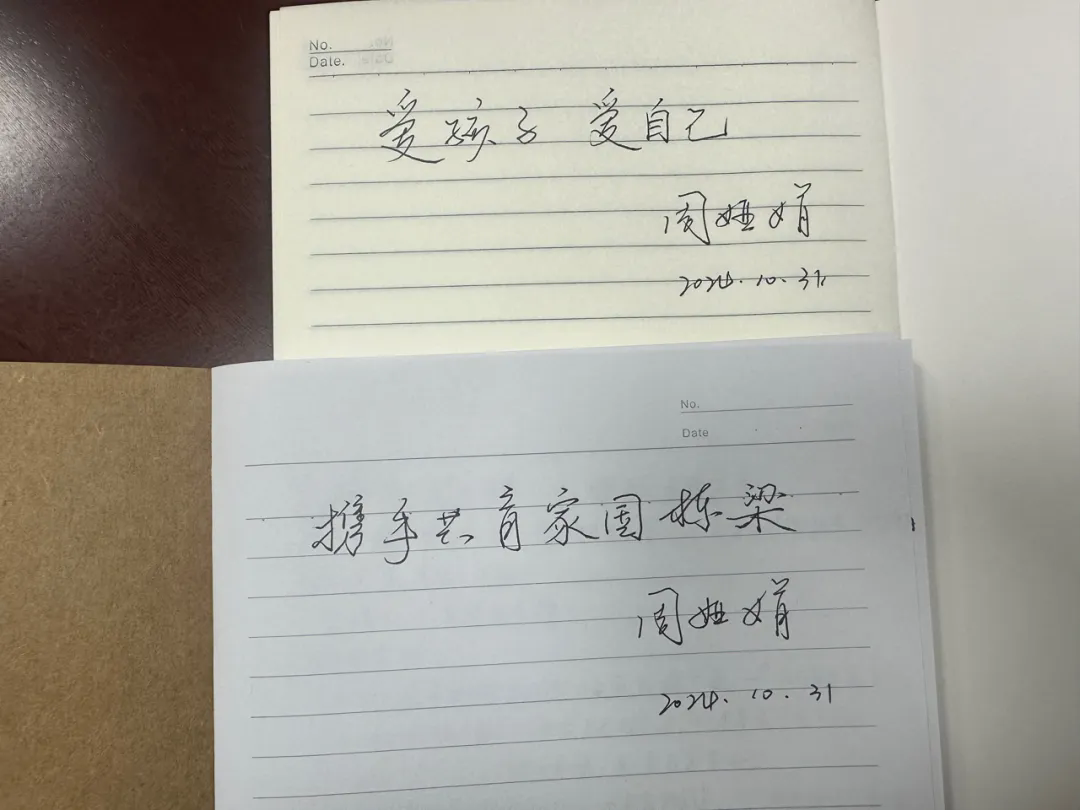 No.
Date.
爱孩子 爱自己
周娅娟
2024.10.31
No.
Date
携手共育家国栋梁
周娅娟
2024.10.31